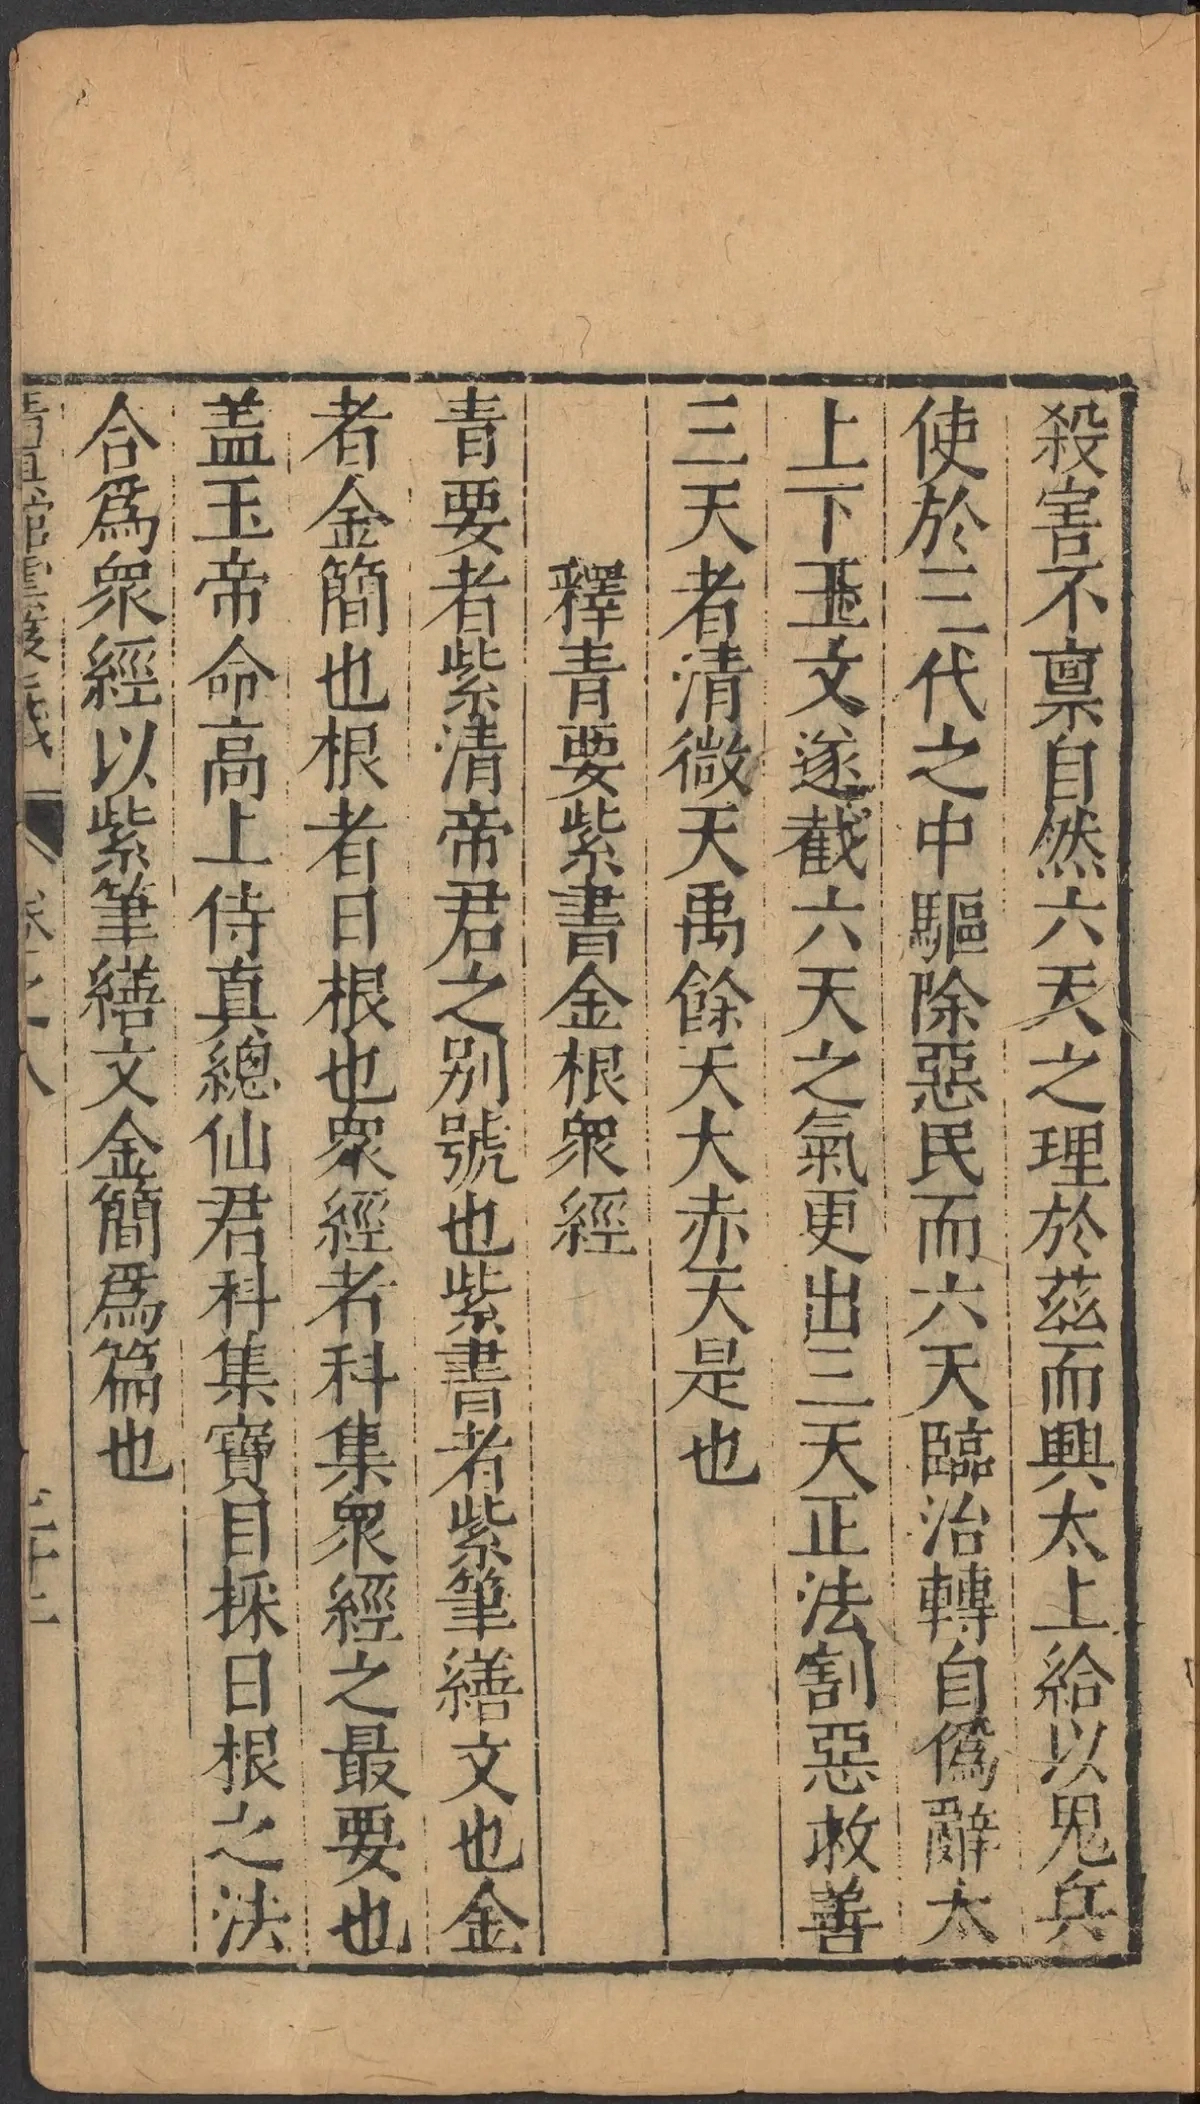 殺害不稟自然六天之理於茲而興太上給以鬼兵
使於三代之中驅除惡民而六天臨治轉自僞辭太
上下玉文遂截六天之氣更出三天正法割惡救善
三天者清微天禹餘天大赤天是也
釋青要紫書金根衆經
青要者紫清帝君之别號也紫書者紫筆繕文也金
者金簡也根者日根也衆經者科集衆經之最要也
盖玉帝命高上侍真總仙君科集寶目採日根之法
合爲衆經以紫筆繕文金簡爲篇也